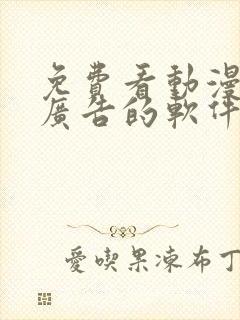 免費看動漫
廣告的軟件
愛喫果凍布丁